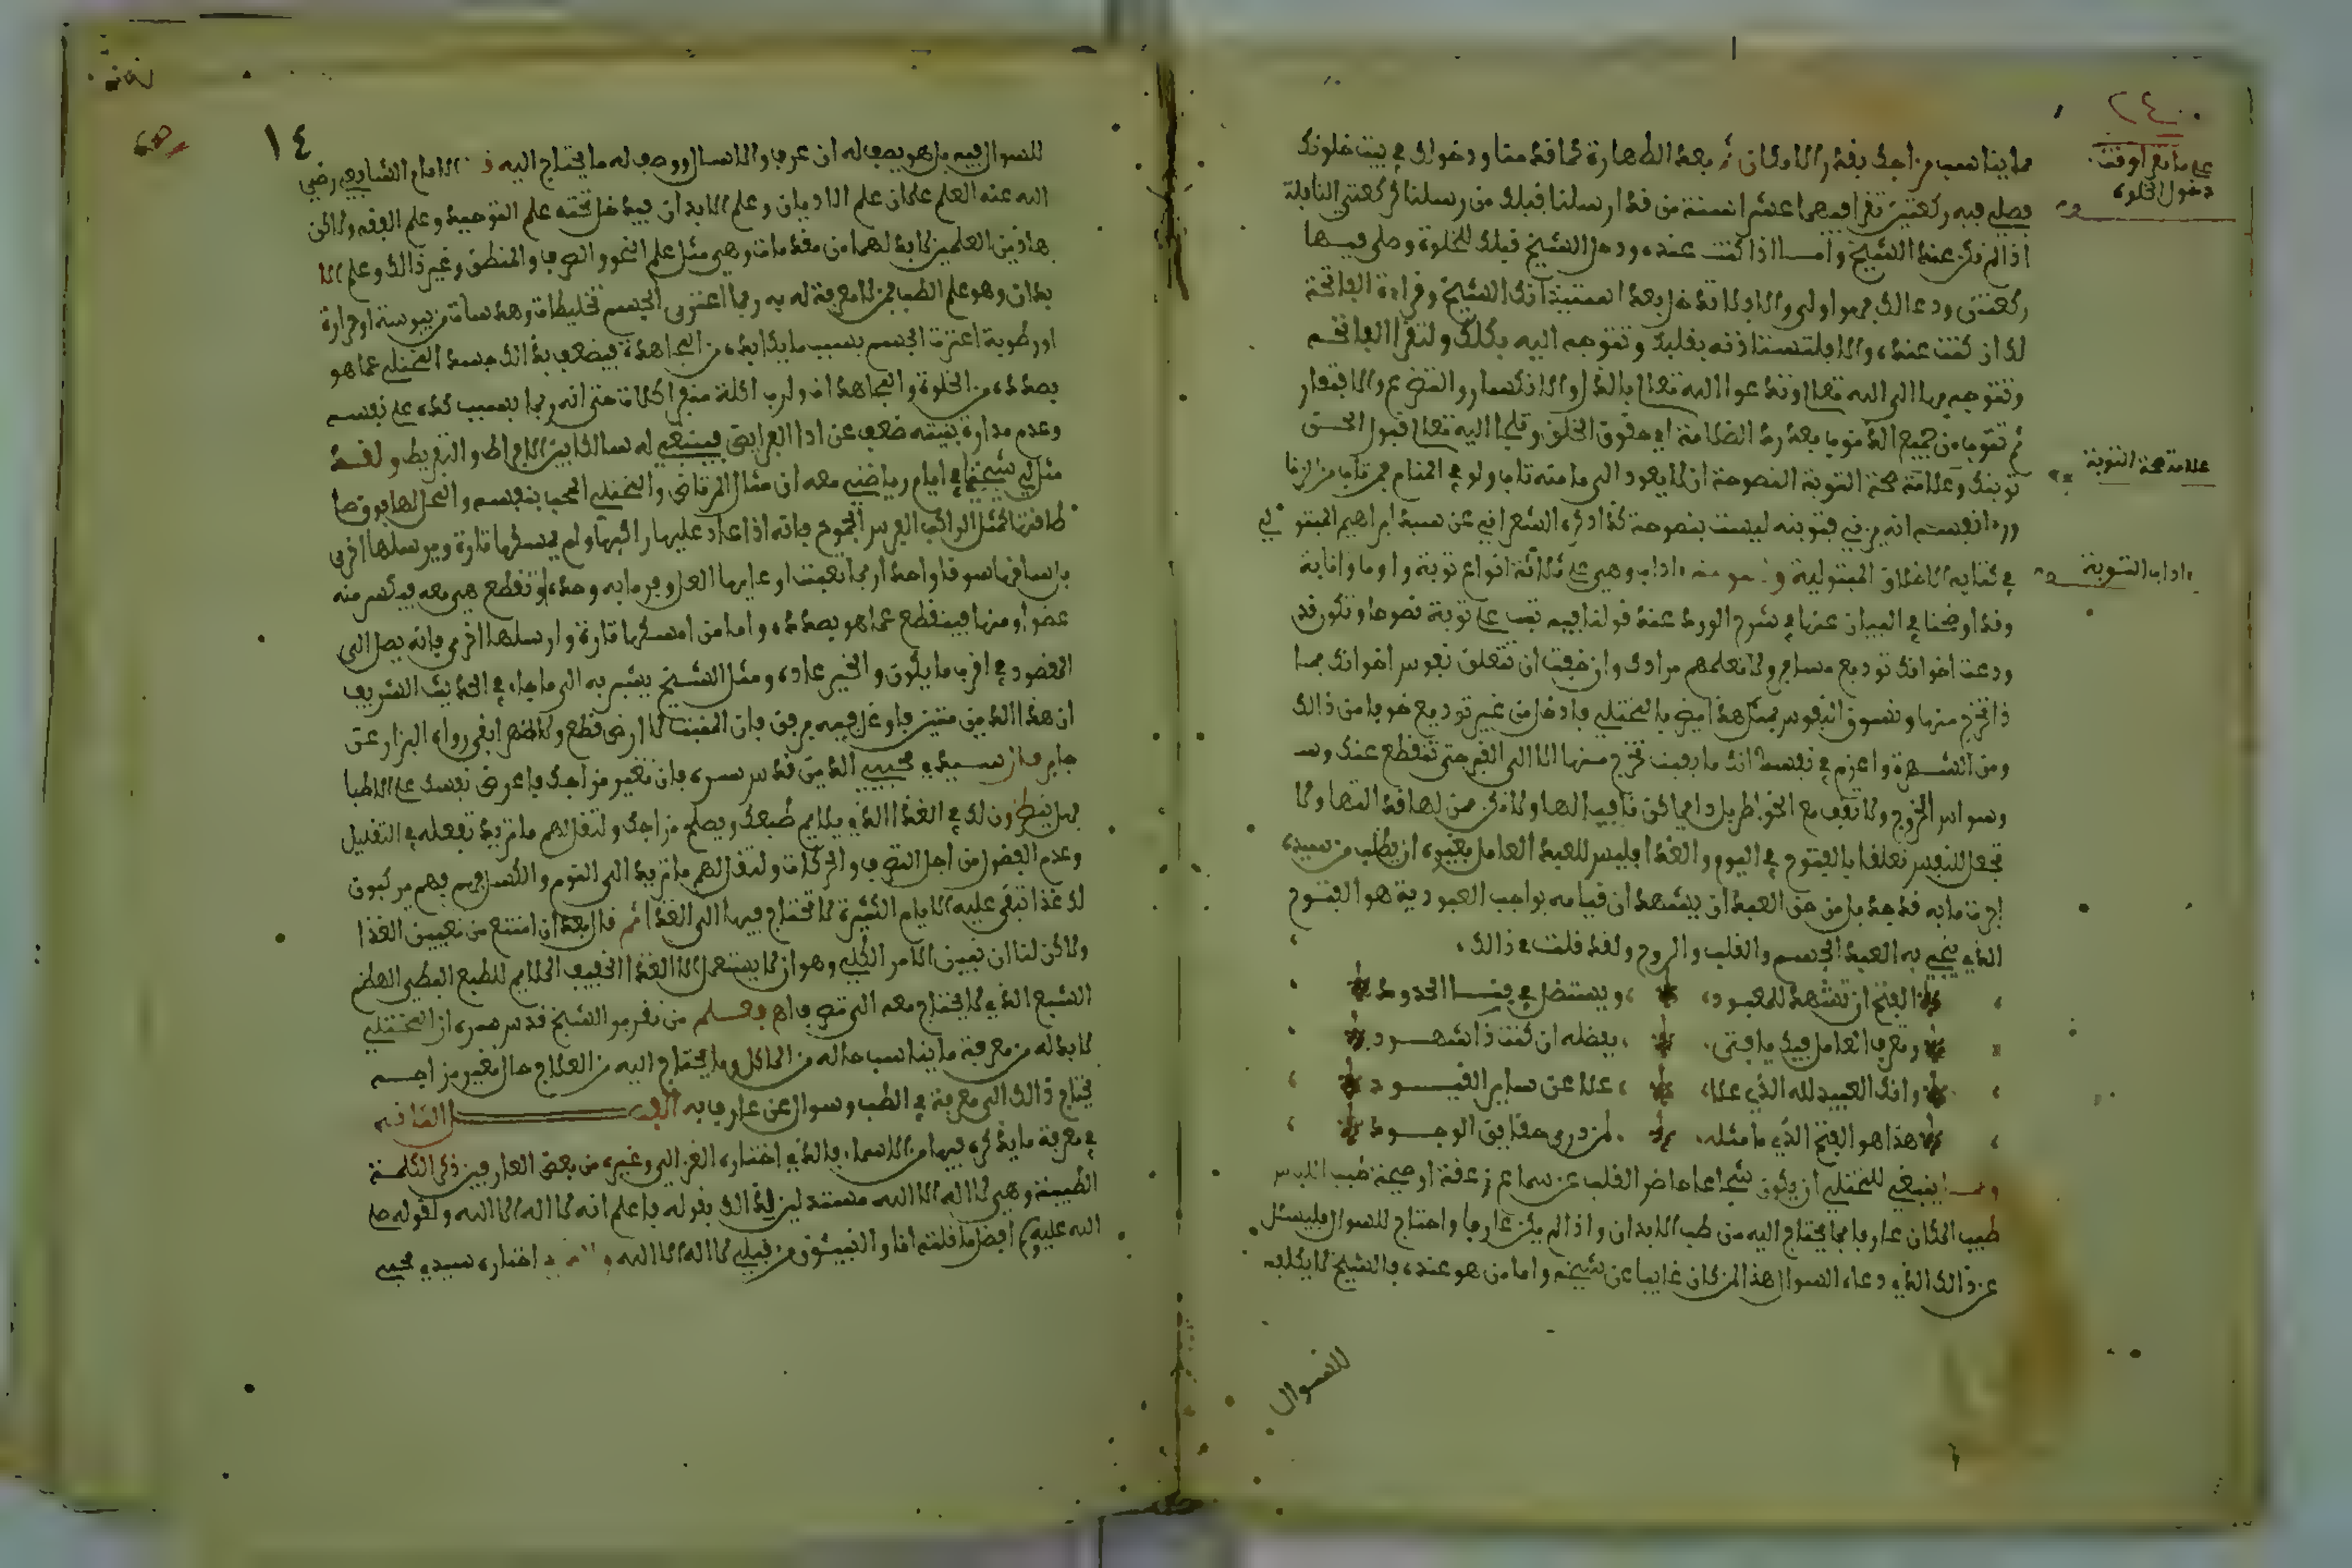 مما يناسب مزاجك بقدر الامكان ثم بعد الطهارة كما قدمنا ودخولك في بيت خلوتك
فصلي فيه ركعتين تقرا فيهما عشرا سنة من قد ارسلنا قبلك من رسلنا ثم ركعتي النافلة
اذا لم تكن عند الشيخ واما اذا كنت عنده ودخل الشيخ قبلك للخلوة وصلى فيها
ركعتين ودعا لك فهو اولى والا فلا تدخل بعد استيذانك الشيخ وقراءة الفاتحة
لك ان كنت عنده والا فلتستاذنه بقلبك وتتوجه اليه بكلك ولتقرا الفاتحة
وتتوجه بها الى الله تعالى وتدعوا الله تعالى بالذل والانكسار والتضرع والافتقار
ثم تتوب من جميع الذنوب بعد رد الظلامة اي حقوق الخلق وتلجا اليه تعالى قبول الحق
توبتك وعلامة صحة التوبة النصوحة ان لا يعود الى ما منه تاب ولو في المنام فمن تاب من الزنا
ورءا نفسه انه يزني فتوبته ليست بنصوحة كذا ذكره الشعراني عن سيد ابراهيم المتبولي
في كتابه الاخلاق المتبولية اداب وهي على ثلاثة انواع توبة واوما وانابة
وقد اوضحنا في البيان عنها في شرح الورد عند قولنا فيه تب علي توبة نصوحا وتكون قد
ودعت اخوانك توديع مسافر ولا تعلمهم مرادك وان خفت ان تتعلق نفوس اخوانك بما
ذا تخرج منها وتتسوق النفوس بمثل هذا ايضا يا المختلي فادخل من غير توديع خوفا من ذالك
ومن الشهرة واعزم في نفسك انك ما بقيت تخرج منها الا الى القبر حتى تنقطع عنك وسـ
وسواس الخروج ولا تقف مع الخواطر بل دايما كن نافيا لها ولا تكن ممن لها قد التها ولا
تجعل للنفس تعلقا بالفتوح في اليوم والغد فليس للعبد العامل بغيره ان يطلب من سيده
اجرة ما به قد جد بل من حق العبد ان يشهد ان قيامه بواجب العبودية هو الفتوح
الذي يحيى به العبد الجسم والقلب والروح ولقد قلت في ذالك
الفتح ان تشهد للمعبود ويستظل في فنا الحدود
وتعرف العامل فيك يا فتى بفضله ان كنت ذا شهود
وانك العبيد لله الذي علا علا عن ساير القيود
هذا هو الفتح الذي ما مثله لمن درى حقايق الوجود
ومما ينبغي للمختلي ان يكون شجاعا حاضر القلب عن سماع زعقة او صيحة
طبيب المكان عارفا بما يحتاج اليه من طب الابدان واذا لم يكن عارفا واحتاج للسوال فليسئل
عن ذالك الذي دعاه السوال هذا لمن كان غايبا عن شيخه واما من هو عنده فالشيخ لا يكلفه
للسوال
على ما يقرا وقت
دخول الخلوة
علامة صحة التوبة
اداب التوبة
١٤
للسوال فيه بل هو يصف له ان عرف والا سال ووصف له ما يحتاج اليه الامام الشافعي رضي
الله عنه العلم علمان علم الاديان وعلم الابدان فيدخل تحته علم التوحيد وعلم الفقه ولاكن
هاذين العلمين لا بد لهما من مقدمات وهي مثل علم النحو والصرف والمنطق وغير ذالك وعلم الا
بدان وهو علم الطب فمن لا معرفة له به ربما اعترى الجسم تخليطات وهدسات من يبوسة او حرارة
او رطوبة اعترت الجسم بسبب ما يكابده من المجاهدة فيضعف بذالك جسد المختلي عما هو
بصدده من الخلوة والمجاهدات ولرب اكلة منعت اكلات حتى انه ربما بسبب كده على نفسه
وعدم مداراة بنيته ضعف عن ادا الفرايض فينبغي له سالكا بين الافراط والتفريط ولقد
مثل لي شيخي في ايام رياضتي معه ان مثال المرتاض والمختلي المحب بنفسه والمحملها فوق طا
طاقتها كمثل الراكب الفرس الجموح فانه اذا عاد عليها راكبها ولم يمسكها تارة ويرسلها اخرى
بل ساقها سوقا واحدا ربما تعبت او غلبها العل وترمى به وحده او تقطع هي معه فيكسر منه
عضوا ومنها فينقطع عما هو بصدده واما من امسكها تارة وارسلها اخرى فانه يصل الى
المقصود في اقرب ما يكون والخير عاده ومثل الشيخ يشير به الى ما جاء في الحديث الشريف
ان هذا الدين متين فاوغل فيه برفق فان المنبت لا ارض قطع ولا ظهرا ابقى رواه البزار عن
جابر قال سيدي محيي الدين قدس سره فان تغير مزاجك فاعرض نفسك على الاطبا
فهل ينظرون لك في الغذا الذي يلايم طبعك ويصلح مزاجك ولتقل لهم ما تريد تفعله في التقليل
وعدم الفضول من اجل التصرف والحركات ولتقل لهم ما تريد الى النوم والكسل فهم يركبون
لك غذا تبقى عليه الايام الكثيرة لا تحتاج فيها الى الغذا ثم قال بعد ان امتنع من تعيين الغذا
ولاكن لنا ان نبين الامر الكلي وهو ان لا يستعمل الا الغذا الخفيف الملايم للطبع البطي الهضم
الشبع الذي لا يحتاج معه الى تصرف اهـ فعلم من تقرير الشيخ قدس سره ان المختلي
لا بد له من معرفة ما يناسب حاله من الماكل وما يحتاج اليه من العلاج حال تغير مزاجه
يحتاج ذالك الى معرفة في الطب وسوال عن عارف به
في معرفة ما يذكره فيها من الاسماء فالذي اختاره الغزالي وغيره من بعض العارفين ذكر الكلمة
الطيبة وهي لا اله الا الله مستدلين لذالك بقوله فاعلم انه لا اله الا الله ولقوله صلى
الله عليه افضل ما قلته انا والنبيئون من قبلي لا اله الا الله اختاره سيدي محيي